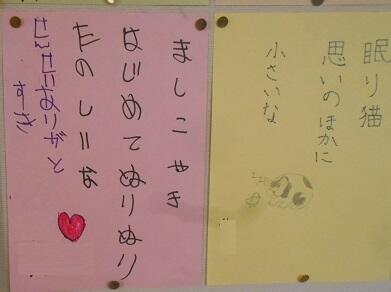 眠り猫
思いのほかに
小さいな
zzz
ましこやき
はじめてぬりぬり
たのしいな
せんせいありがと
すーき